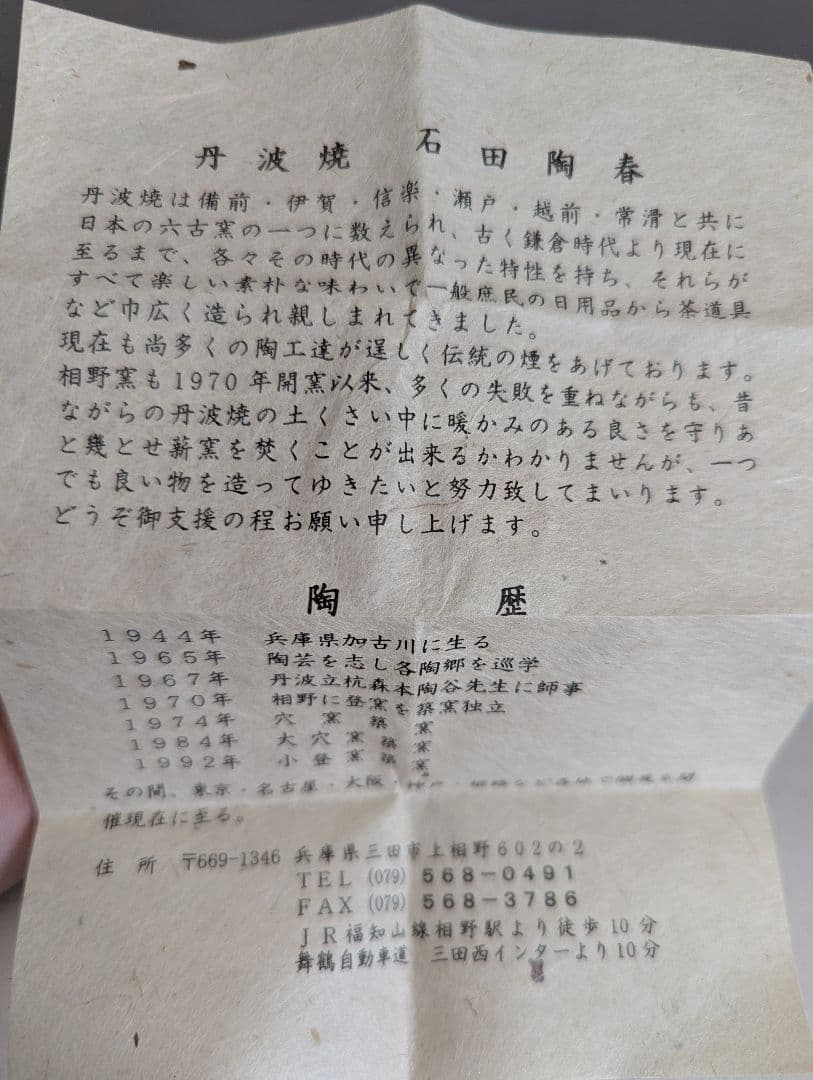 丹波焼　石田陶春
丹波焼は備前・伊賀・信楽・瀬戸・越前・常滑と共に
日本の六古窯の一つに数えられ、古く鎌倉時代より現在に
至るまで、各々その時代の異なった特性を持ち、それらが
すべて楽しい素朴な味わいで一般庶民の日用品から茶道具
など巾広く造られ親しまれてきました。
現在も尚多くの陶工達が逞しく伝統の煙をあげております。
相野窯も1970年開窯以来、多くの失敗を重ねながらも、昔
ながらの丹波焼の土くさい中に暖かみのある良さを守りあ
と幾とせ薪窯を焚くことが出来るかわかりませんが、一つ
でも良い物を造ってゆきたいと努力致してまいります。
どうぞ御支援の程お願い申し上げます。
陶　歴
1944年　兵庫県加古川に生る
1965年　陶芸を志し各陶郷を巡学
1967年　丹波立杭森本陶谷先生に師事
1970年　相野に登窯を築窯独立
1974年　穴窯築窯
1984年　大穴窯築窯
1992年　小登窯築窯
その間、東京・名古屋・大阪・
催現在に至る。
住　所　〒669-1346 兵庫県三田市上相野602の2
TEL (079) 568-0491
FAX (079) 568-3786
JR福知山線相野駅より徒歩10分
舞鶴自動車道　三田西インターより10分